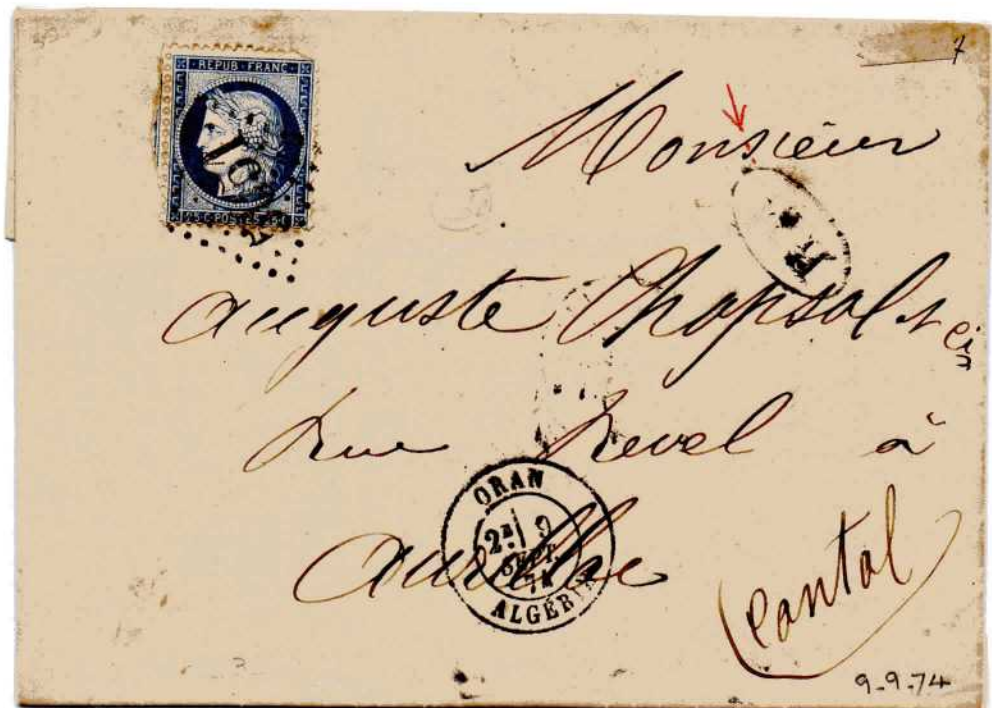 7
REPUB·FRANC·
25 C·POSTES·25 C
Monsieur
auguste Chapsal & Cie
Rue Revel à
Aurillac
ORAN
2E 9
SEPT.
74
ALGÉRIE
Cantal
9-9-74